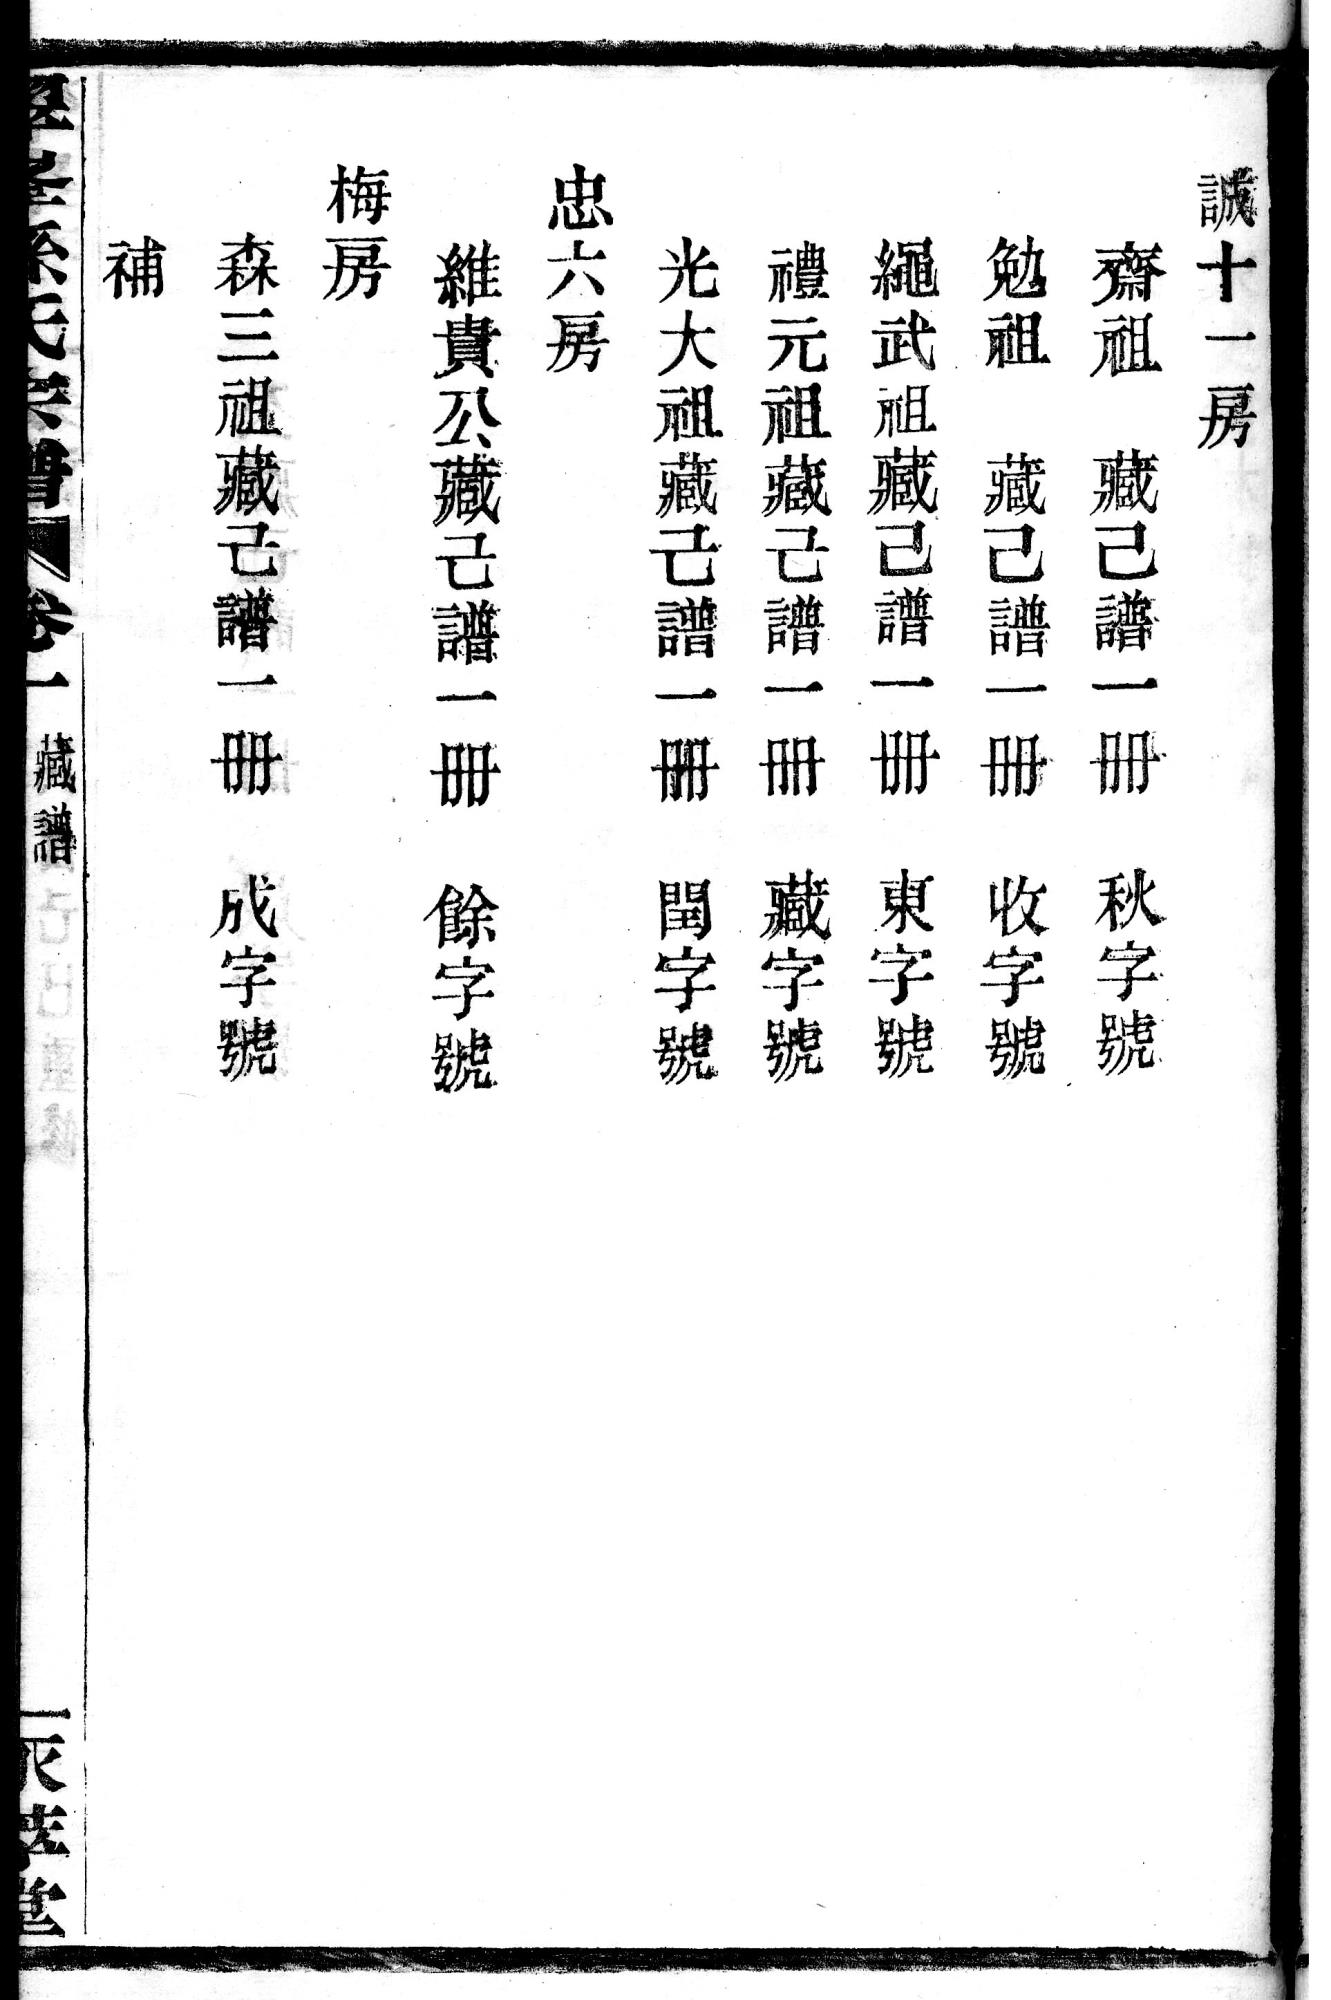 誠十一房
齋祖　藏己譜一冊　秋字號
勉祖　藏己譜一冊　收字號
繩武祖藏己譜一冊　東字號
禮元祖藏己譜一冊　藏字號
光大祖藏己譜一冊　閏字號
忠六房
維貴公藏己譜一冊　餘字號
梅房
森三祖藏己譜一冊　成字號
補
孫氏宗譜　卷一　藏譜　一　堂